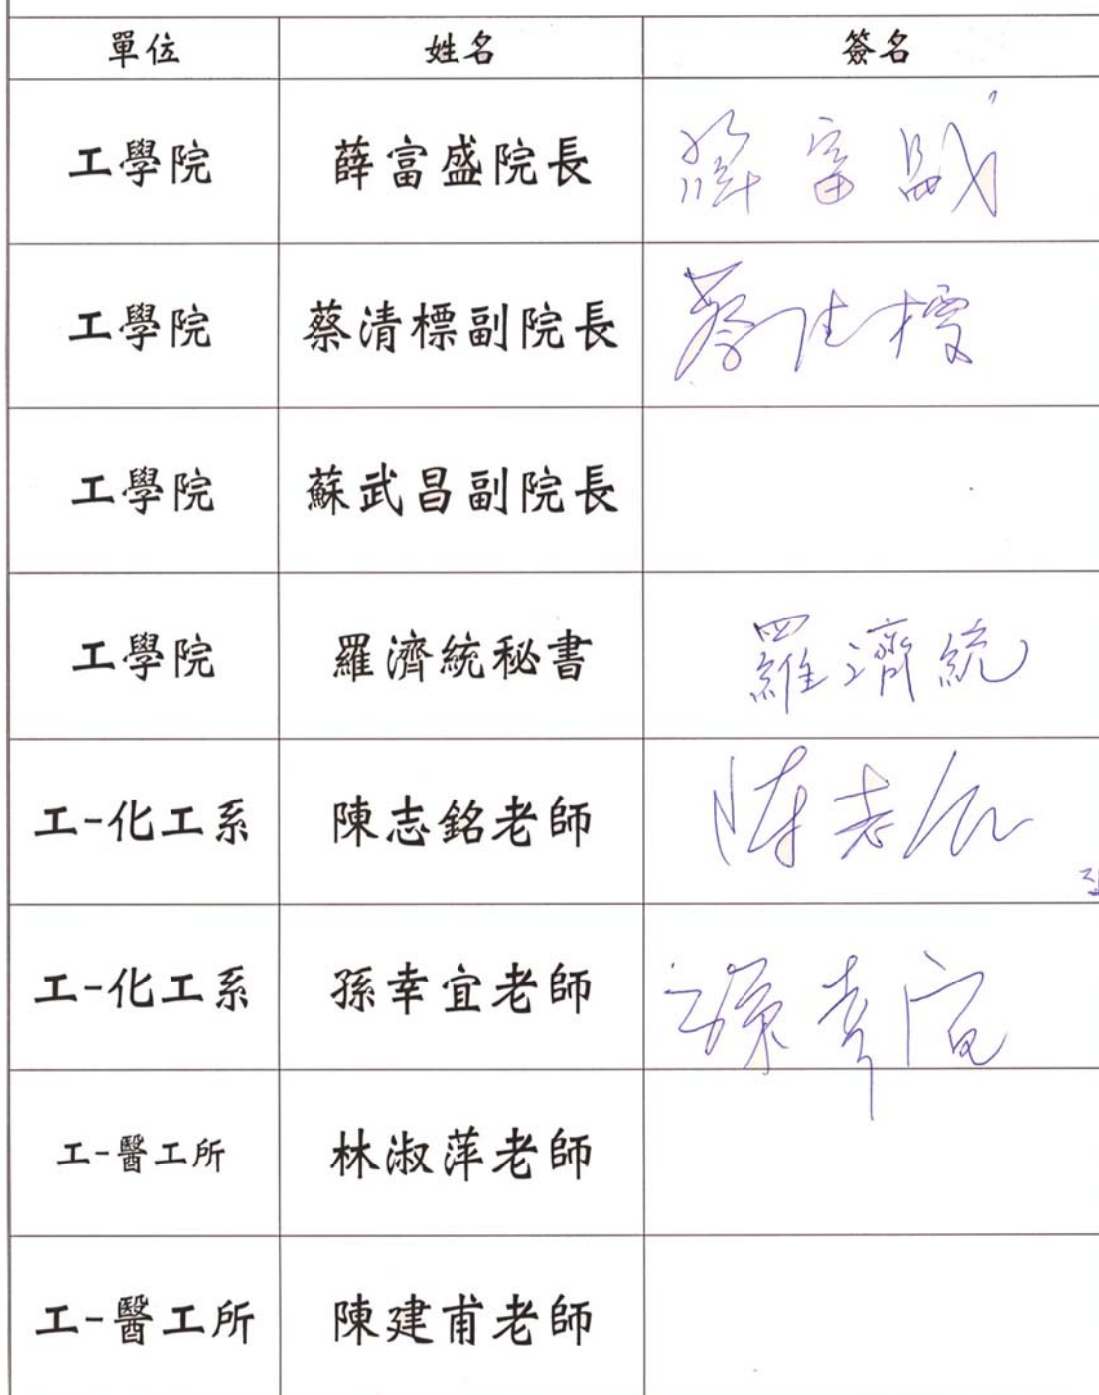 單位 姓名 簽名
工學院 薛富盛院長 薛富盛
工學院 蔡清標副院長 蔡
工學院 蘇武昌副院長
工學院 羅濟統秘書 羅濟統
工-化工系 陳志銘老師 陳志銘
工-化工系 孫幸宜老師 孫幸宜
工-醫工所 林淑萍老師
工-醫工所 陳建甫老師